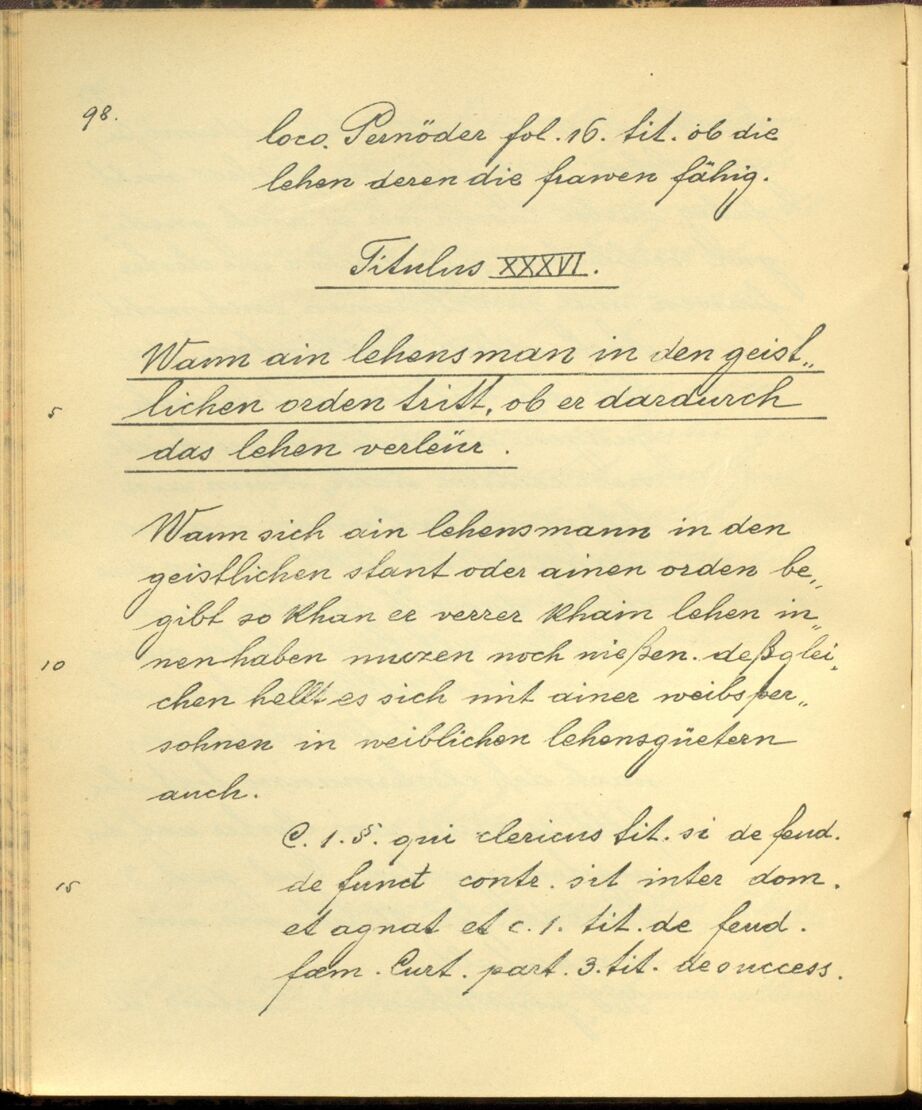 98.
loco. Pernöder fol. 16. tit. ob die
lehen deren die frawen fähig.
Titulus XXXVI.
Wann ain lehensman in den geist„
5 lichen orden tritt, ob er dardurch
das lehen verleür.
Wann sich ain lehensmann in den
geistlichen stant oder ainen orden be„
gibt so khan er verrer khain lehen in„
10 nenhaben nuczen noch nießen. deßglei„
chen hellt es sich mit ainer weibsper„
sohnen in weiblichen lehensgüetern
auch.
C. 1. §. qui clericus tit. si de feud.
15 de funct contr. sit inter dom.
et agnat et c. 1. tit. de feud.
fœm. Curt. part. 3. tit. de success.